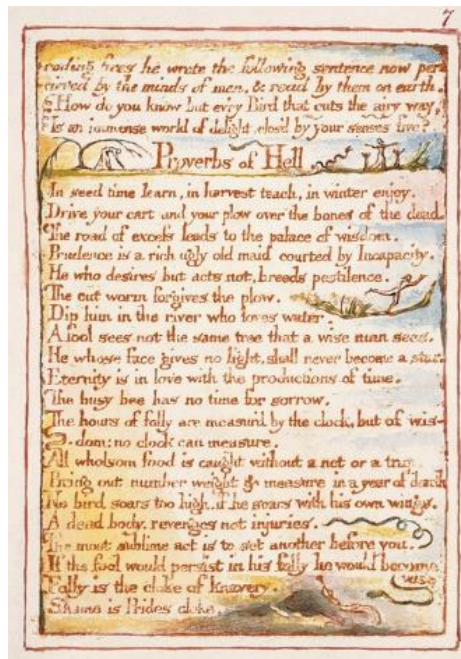 7
roding fires he wrote the following sentence now per
cieved by the minds of men, & read by them on earth.
How do you know but ev'ry Bird that cuts the airy way,
Is an immense world of delight, clos'd by your senses five?
Proverbs of Hell
In seed time learn, in harvest teach, in winter enjoy.
Drive your cart and your plow over the bones of the dead.
The road of excess leads to the palace of wisdom.
Prudence is a rich ugly old maid courted by Incapacity.
He who desires but acts not, breeds pestilence.
The cut worm forgives the plow.
Dip him in the river who loves water.
A fool sees not the same tree that a wise man sees.
He whose face gives no light, shall never become a star.
Eternity is in love with the productions of time.
The busy bee has no time for sorrow.
The hours of folly are measur'd by the clock, but of wis-
-dom: no clock can measure.
All wholsom food is caught without a net or a trap.
Bring out number weight & measure in a year of dearth
No bird soars too high, if he soars with his own wings.
A dead body, revenges not injuries.
The most sublime act is to set another before you.
If the fool would persist in his folly he would become
wise
Folly is the cloke of knavery.
Shame is Prides cloke.